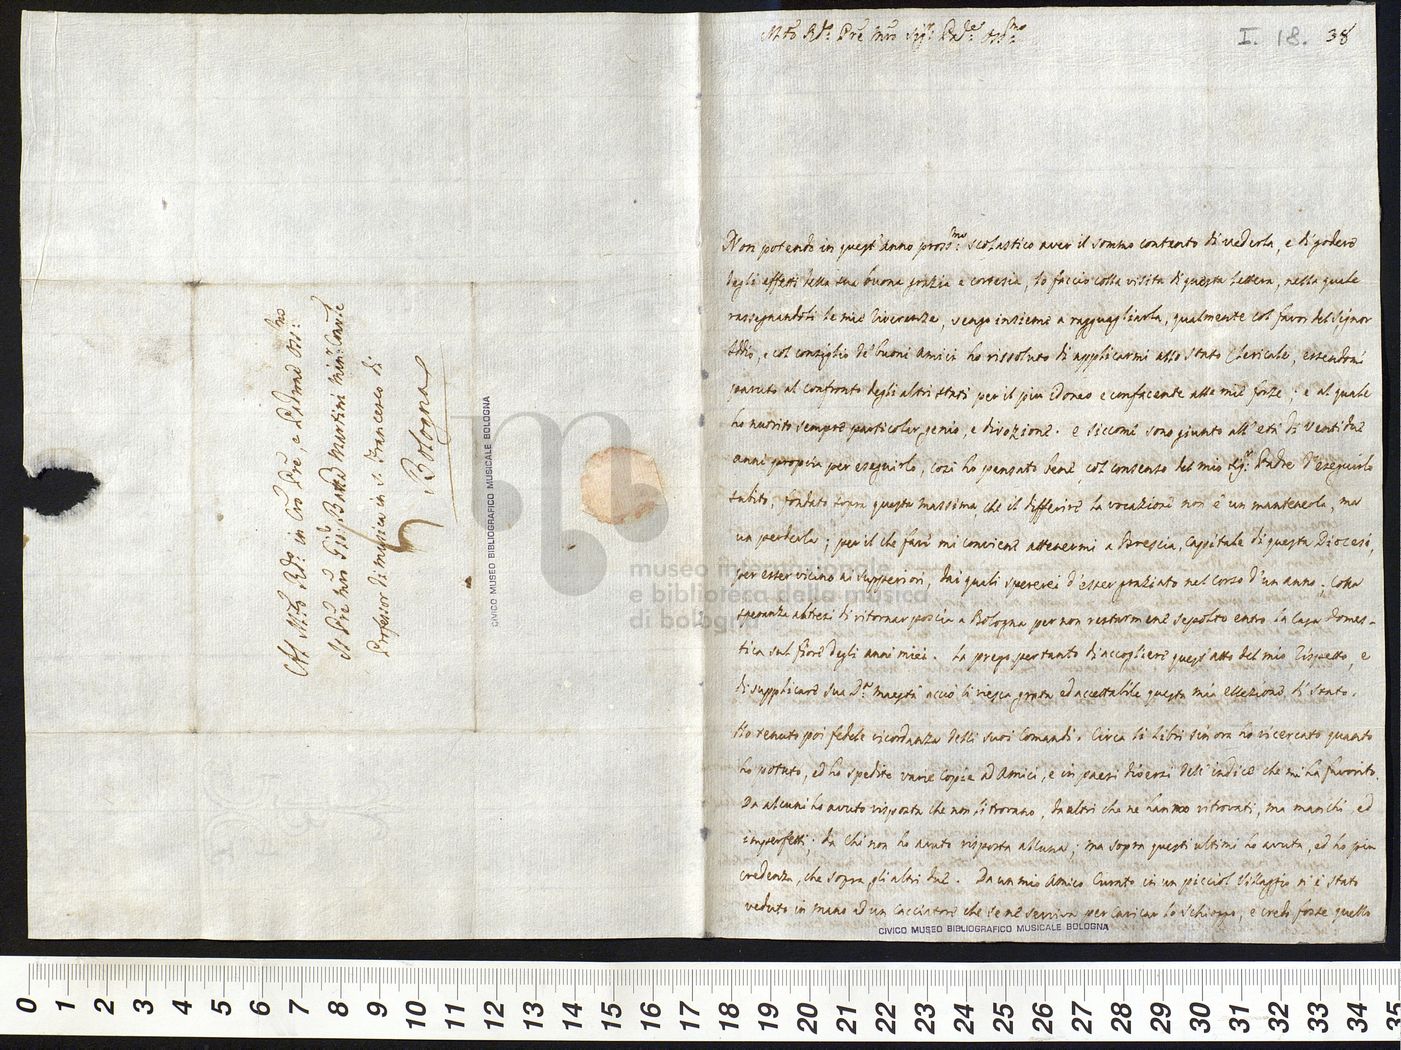 Al Mto Rdo. in Cro Pre, e Padrone Oss:mo
Il Pre Mro Gio: Batta Martini Min: Con:le
Professor di Musica in S. Francesco di
Bologna
CIVICO MUSEO BIBLIOGRAFICO MUSICALE BOLOGNA
Mto Rdo. Pre Mro Sig: Pade Oss:mo
I. 18. 38
Non potendo in quest'anno pross:mo scolastico aver il sommo contento di vederla, e di godere
degli effetti della sua buona grazia e cortesia, lo faccio colla visita di questa lettera, nella quale
rassegnandoli le mie riverenze, vengo insieme a ragguagliarla, qualmente col favor del Signor
Iddio, e col consiglio de' buoni Amici ho rissoluto di applicarmi allo stato Clericale, essendomi
paruto al confronto degli altri stati per il piu idoneo e confacente alle mie forze; e al quale
ho nutrito sempre particolar genio, e divozione. e siccome sono giunto all'età di ventidue
anni propria per eseguirlo, così ho pensato bene, col consenso del mio Sig: Padre d'eseguirlo
subito, fondato sopra questa massima, che il differire la vocazione non è un mantenerla, ma
un perderla; per il che fare mi conviene attenermi a Brescia, Capitale di questa Diocesi,
per esser vicino ai superiori, dai quali spererei d'esser graziato nel corso d'un anno. Colla
speranza altresi di ritornar poscia a Bologna per non restarmene sepolto entro la Casa domes-
tica sul fiore degli anni miei. La prego pertanto di accogliere quest'atto del mio rispetto, e
di supplicare sua Da: Maestà acciò li riesca grata ed accettabile questa mia elezione di stato.
Ho tenuto poi fedele ricordanza delli suoi Comandi. Circa li libri sin ora ho ricercato quanto
ho potuto, ed ho spedite varie Copie ad Amici, e in paesi diversi dell'indice che mi ha favorito.
Da alcuni ho avuto risposta che non si trovano, da altri che ne hanno ritrovati, ma manchi, ed
imperfetti; da chi non ho avuto risposta alcuna; ma sopra questi ultimi ho avuta, ed ho piu
credenza, che sopra gli altri due. Da un mio Amico Curato in un picciol Villaggio n'è stato
veduto in mano ad un Cacciatore che se ne serviva per caricar lo schioppo, e credo fosse quello
CIVICO MUSEO BIBLIOGRAFICO MUSICALE BOLOGNA
museo internazionale
e biblioteca della musica
di bologna
0 1 2 3 4 5 6 7 8 9 10 11 12 13 14 15 16 17 18 19 20 21 22 23 24 25 26 27 28 29 30 31 32 33 34 35